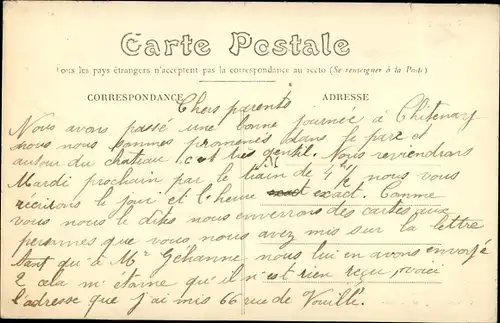 Carte Postale
Tous les pays étrangers n'acceptent pas la correspondance au recto (Se renseigner à la Poste)
CORRESPONDANCE
ADRESSE
Chers parents
Nous avons passé une bonne journée à Chitenay
nous nous sommes promenés dans le parc et
autour du château c'est très gentil. Nous reviendrons
Mardi prochain par le train de 4 H nous vous
récrirons le jour et l'heure exact. Comme
vous nous le dites nous enverrons des cartes aux
personnes que vous nous avez mis sur la lettre
tant qu'à Mr Géhanne nous lui en avons envoyé
2 cela m'étonne qu'il n'est rien reçu, voici
l'adresse que j'ai mis 66 rue de Vouillé.